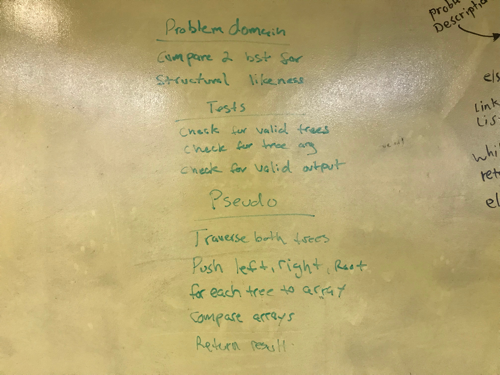 Problem domain
Compare 2 bst for
Structural likeness
Tests
check for valid trees
check for tree arg
check for valid output
Pseudo
Traverse both trees
Push left, right, Root
for each tree to array
Compare arrays
Return result.
Description
Link
Lis
whil